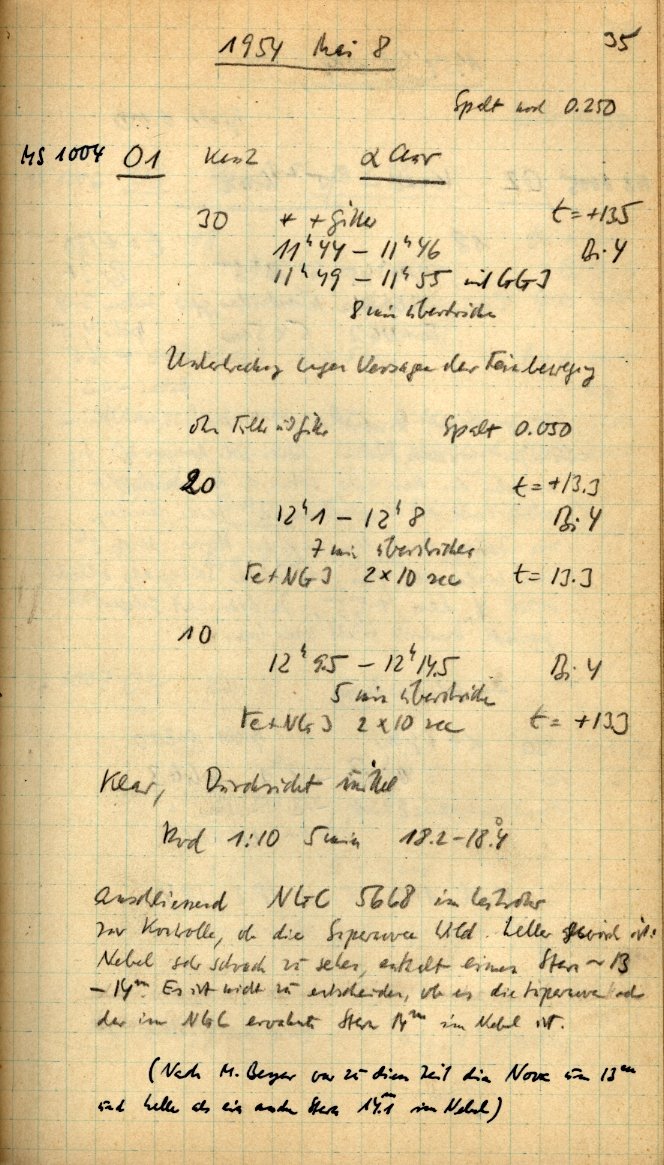 35
1954 Mai 8
Spalt und 0.250
MS 1004 O1 Kas2 α CVn
30 * + Gitter t = +13.5
11ʰ44 – 11ʰ46 Bi 4
11ʰ49 – 11ʰ55 mit GG3
8 min überstrichen
Unterbrechung wegen Versagen der Feinbewegung
ohne Filter und Gitter Spalt 0.050
20 t = +13.3
12ʰ1 – 12ʰ8 Bi 4
7 min überstrichen
Fe+NG3 2×10 sec t = 13.3
10
12ʰ9.5 – 12ʰ14.5 Bi 4
5 min überstrichen
Fe+NG3 2×10 sec t = +13.3
Klar, Durchsicht mittel
Rod 1:10 5 min 18.2–18.°4
anschliessend NGC 5668 im Leitrohr
zur Kontrolle, ob die Supernova heller ist.
Nebel sehr schwach zu sehen, enthält einen Stern ~13
– 14ᵐ. Es ist nicht zu entscheiden, ob es die Supernova oder
der im NGC erwähnte Stern 14ᵐ im Nebel ist.
(Nach M. Beyer war zu dieser Zeit die Nova um 13ᵐ
und heller als ein anderer Stern 14ᵐ.1 im Nebel)